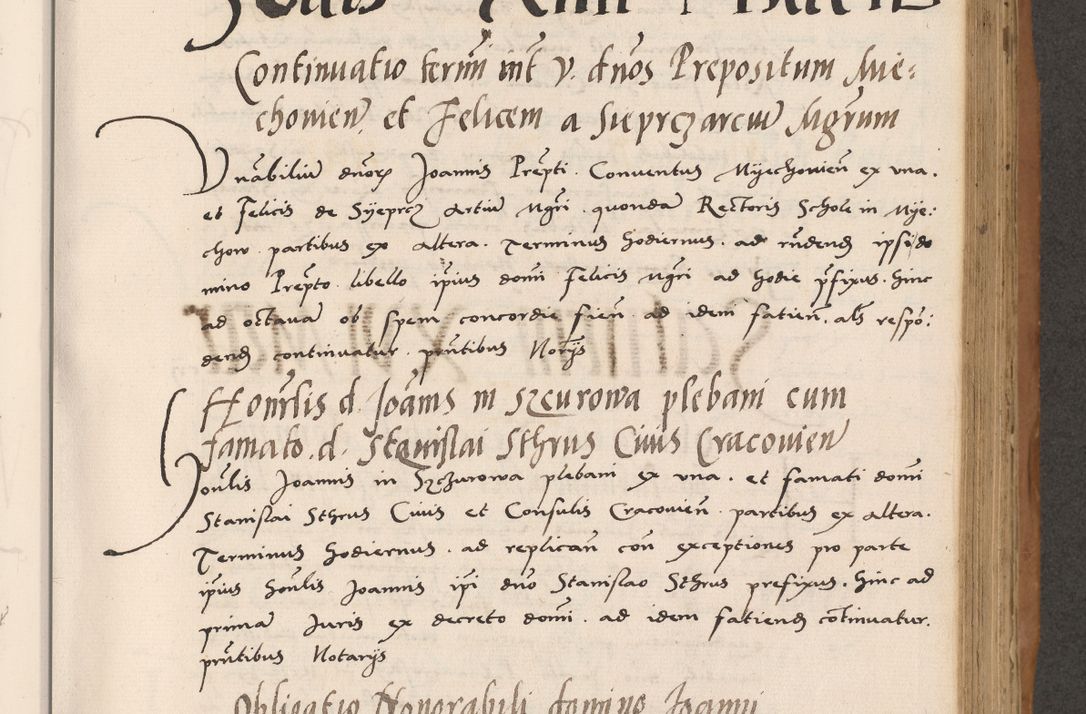 Continuatio termi int v. dnos Prepositum Mie-
chovien et Felicem a Sieprczarcuw Mgrum
Vnabiliu dnor Joannis Prepti Conventus Myechovien ex una.
et Felicis de Syeprcz Artiu Mgri quonda Rectoris Schole in Mye:
chow partibus ex altera. Terminus hodiernus. ad rndend ipsi do
mino Prepto libello ipius domi Felicis Mgri ad hodie pfixus. hinc
ad octava ob spem concordie fien ad idem facien. als respo:
dend continuatur pntibus Norijs
Honrlis d. Joanis in Szcurowa plebani cum
famato d. Stanislai Sthrus Civis Cracovien
onlis Joannis in Szczurowa plebani ex una. et famati domi
Stanislai Sthrus Civis et Consulis Cracovien partibus ex altera.
Terminus hodiernus. ad replican con exceptiones pro parte
ipius honlis Joannis ipi dno Stanislao Sthrus prefixus. hinc ad
prima Juris ex decreto domi. ad idem faciend cotinuatur.
pntibus Notarijs
Obligatio Honorabili domino Joanni